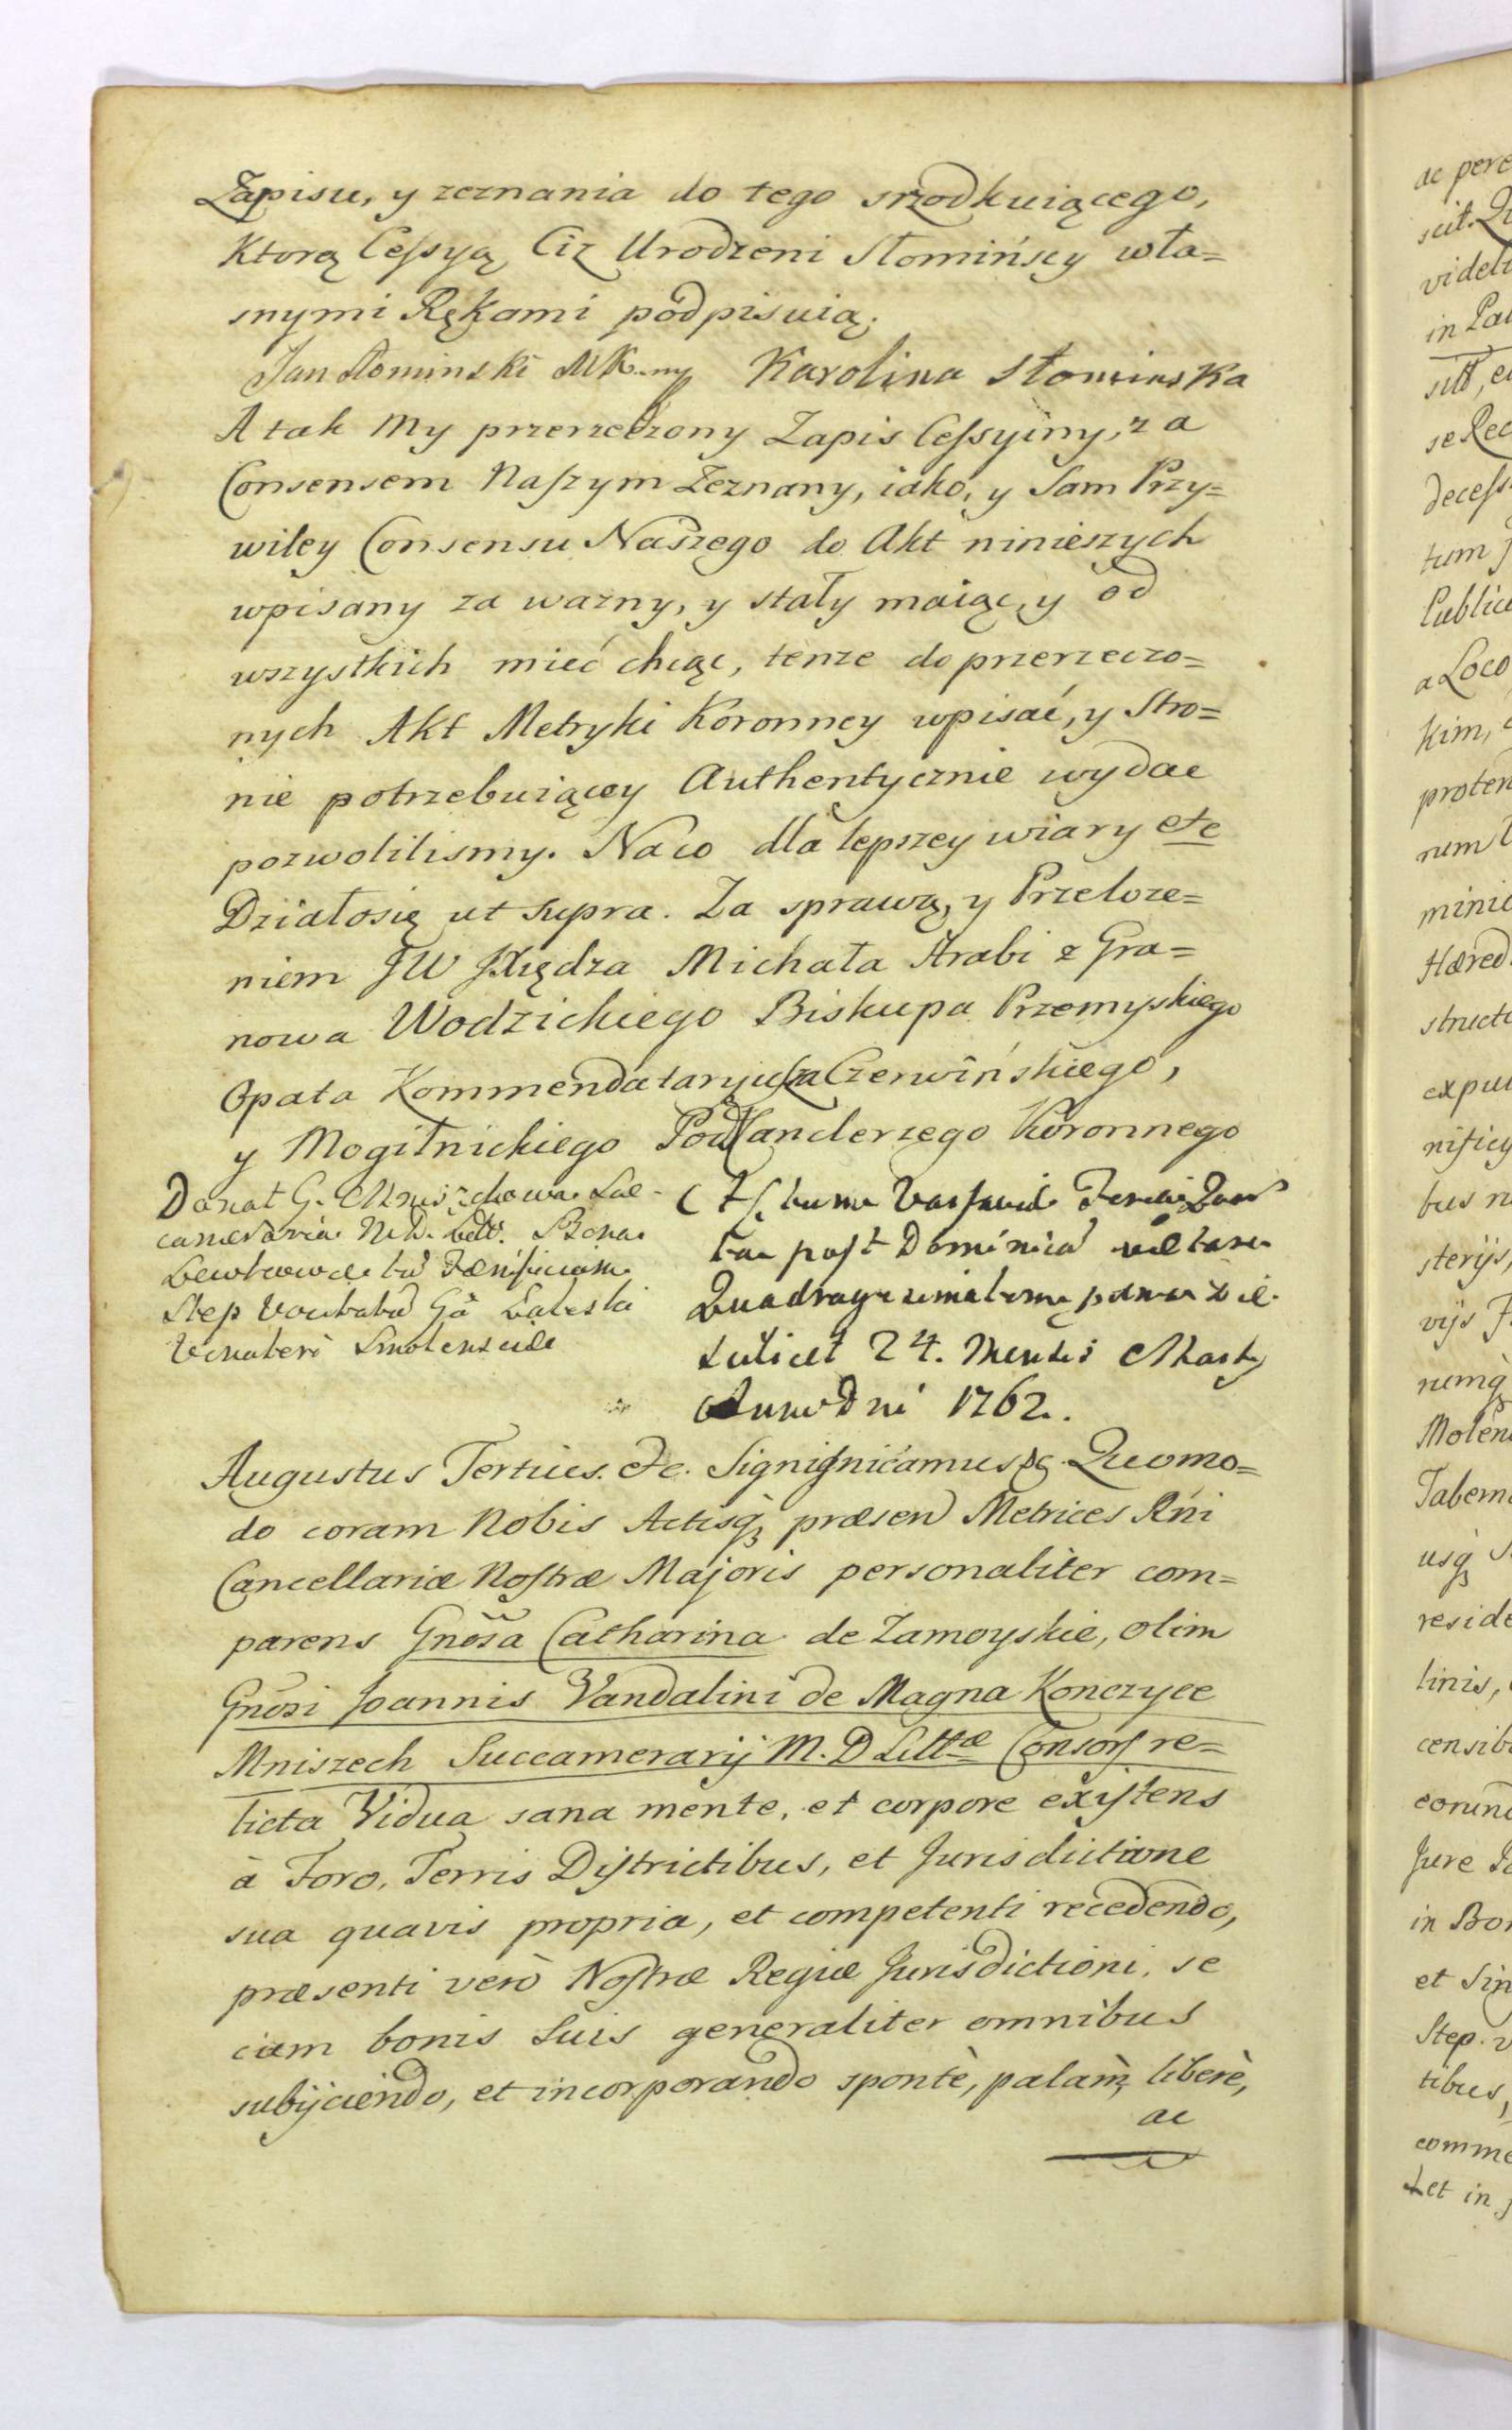 Zapisu, y zeznania do tego srzodkuiącego,
Ktorą Cessyą Ciz Urodzeni Słomińscy wła=
snymi Rękami podpisuią.
Jan Słominski MK..mp Karolina Słominska
A tak My przerzeczony Zapis Cessyiny, za
Consensem Naszym Zeznany, iako, y Sam Przy=
wiley Consensu Naszego do Akt ninieszych
wpisany za wazny, y stały maiąc, y od
wszystkich mieć chcąc, tenze do przerzeczo=
nych Akt Metryki Koronney wpisać, y Stro=
nie potrzebuiącey Authentycznie wydac
pozwolilismy. Naco dla lepszey wiary etc
Działosię ut supra. Za sprawą, y Przeloze=
niem JW JXiędza Michała Hrabi z Gra=
nowa Wodzickiego Biskupa Przemyskiego
Opata Kommendataryusza Czerwińskiego,
y Mogiłnickiego PodKanclerzego Koronnego
Donat G. Mniszchowa Suc-
cameraria M. D. Litt. Bona
Step Voubabu Gō Zaleski
Venatori Smolenscen
Actum Varsaviæ Feria Quar
ta post Dominicā
Quadragesimalem
scilicet 24. Mensis Martÿ
Anno Dni 1762.
Augustus Tertius. etc. Signignicamus etc. Quomo=
do coram Nobis Actisqꝫ præsen Metrices Rńi
Cancellariæ Nostræ Majoris personaliter com=
parens Gnosa Catharina de Zamoyskie, olim
Gnosi Joannis Vandalini de Magna Konczyce
Mniszech Succamerarij M. D Littæ Consors re=
licta Vidua sana mente, et corpore existens
à Foro, Terris Districtibus, et Jurisdictione
sua quavis propria, et competenti recedendo,
præsenti verò Nostræ Regiæ Jurisdictioni, se
cum bonis Suis generaliter omnibus
subijciendo, et incorporando spontè, palàm, liberè,
ac
ac pere
scit. Qu
videli
in Pal
sitt, e
se Rec
decess
tum J
Public
a Loco
kim,
proten
rum
minic
Hæred
structu
expu
nificy
bus n
sterijs,
vijs F
nemqꝫ
Molen
Tabern
usqꝫ
reside
linis,
censib
eorund
Jure
in Bon
et Sin
Step. v
tibus,
comme
et in